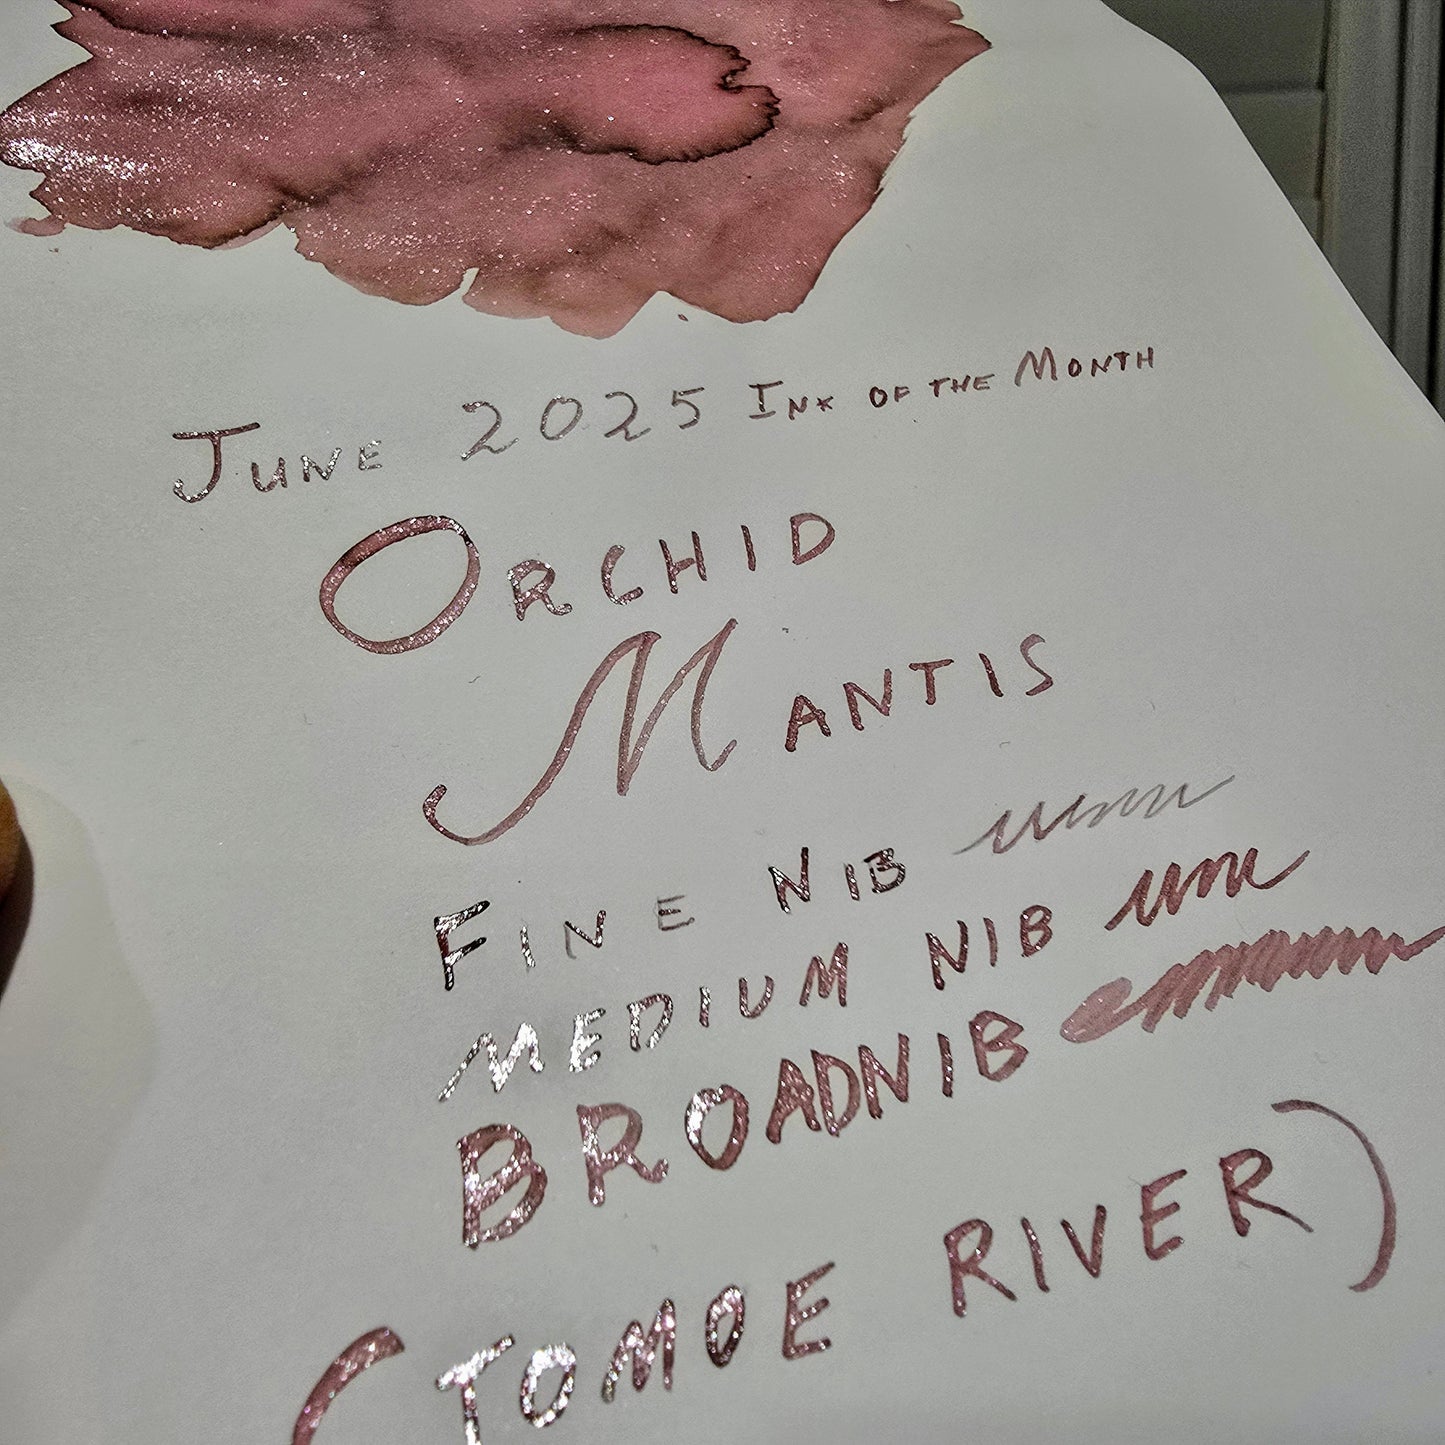 JUNE 2025 INK OF THE MONTH
ORCHID
MANTIS
FINE NIB
MEDIUM NIB
BROADNIB
(TOMOE RIVER)